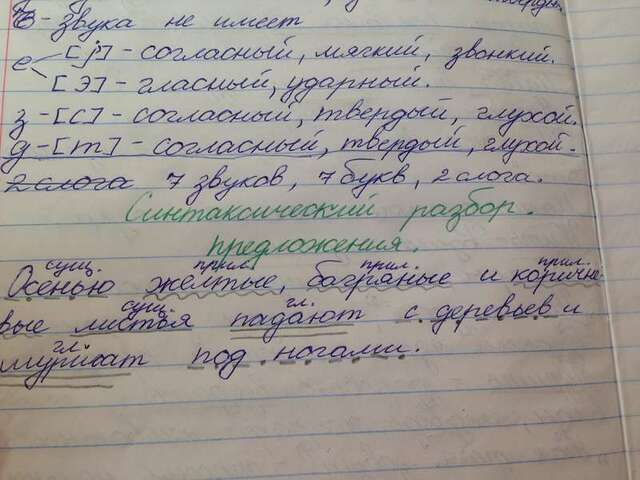 ъ - Звука не имеет
е < [j'] - согласный, мягкий, звонкий.
[э] - гласный, ударный.
з - [с] - согласный, твердый, глухой.
д - [т] - согласный, твердый, глухой.
2 слога 7 звуков, 7 букв, 2 слога.
Синтаксический разбор
предложения.
сущ. прил. прил. прил.
Осенью жёлтые, багряные и коричне-
сущ. гл.
вые листья падают с деревьев и
гл.
шуршат под ногами.